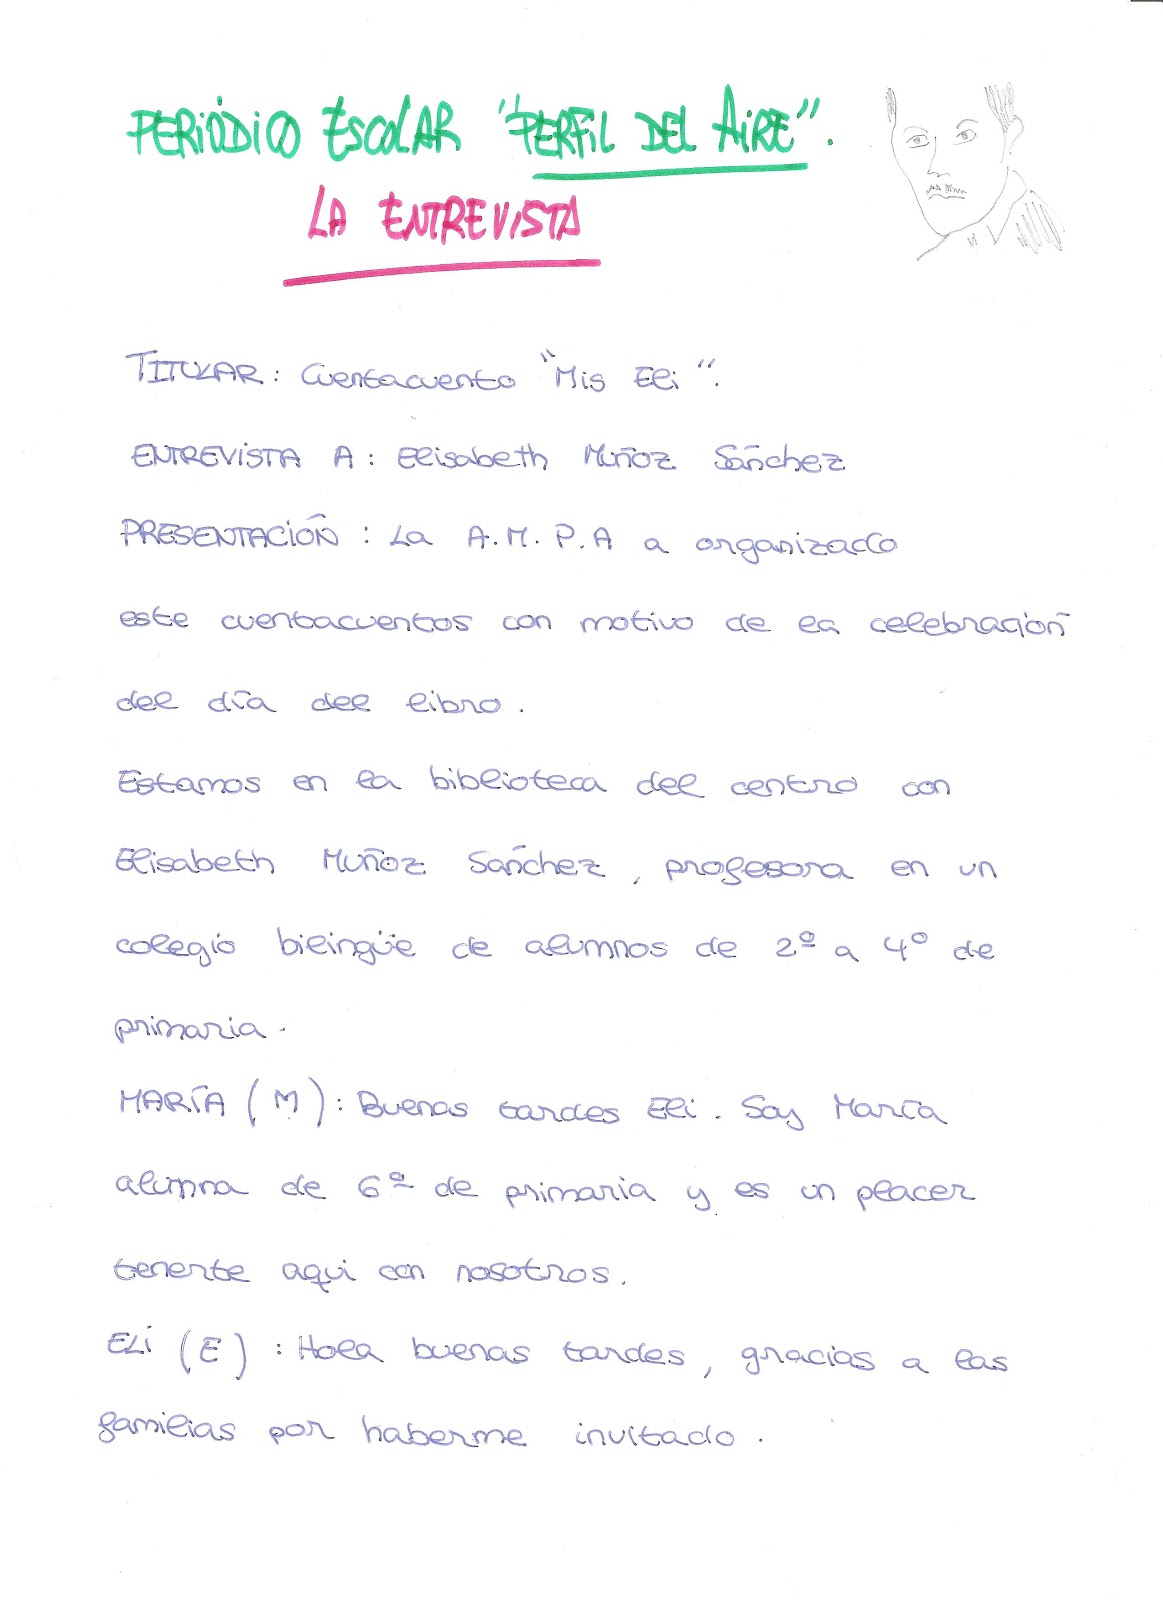 PERIÓDICO ESCOLAR "PERFIL DEL AIRE".
LA ENTREVISTA
TITULAR: Cuentacuento "Mis Eli".
ENTREVISTA A: Elisabeth Muñoz Sánchez
PRESENTACIÓN: La A.M.P.A a organizado
este cuentacuentos con motivo de la celebración
del día del libro.
Estamos en la biblioteca del centro con
Elisabeth Muñoz Sánchez, profesora en un
colegio bilingüe de alumnos de 2º a 4º de
primaria.
MARÍA (M): Buenas tardes Eli. Soy María
alumna de 6º de primaria y es un placer
tenerte aqui con nosotros.
ELI (E): Hola buenas tardes, gracias a las
familias por haberme invitado.